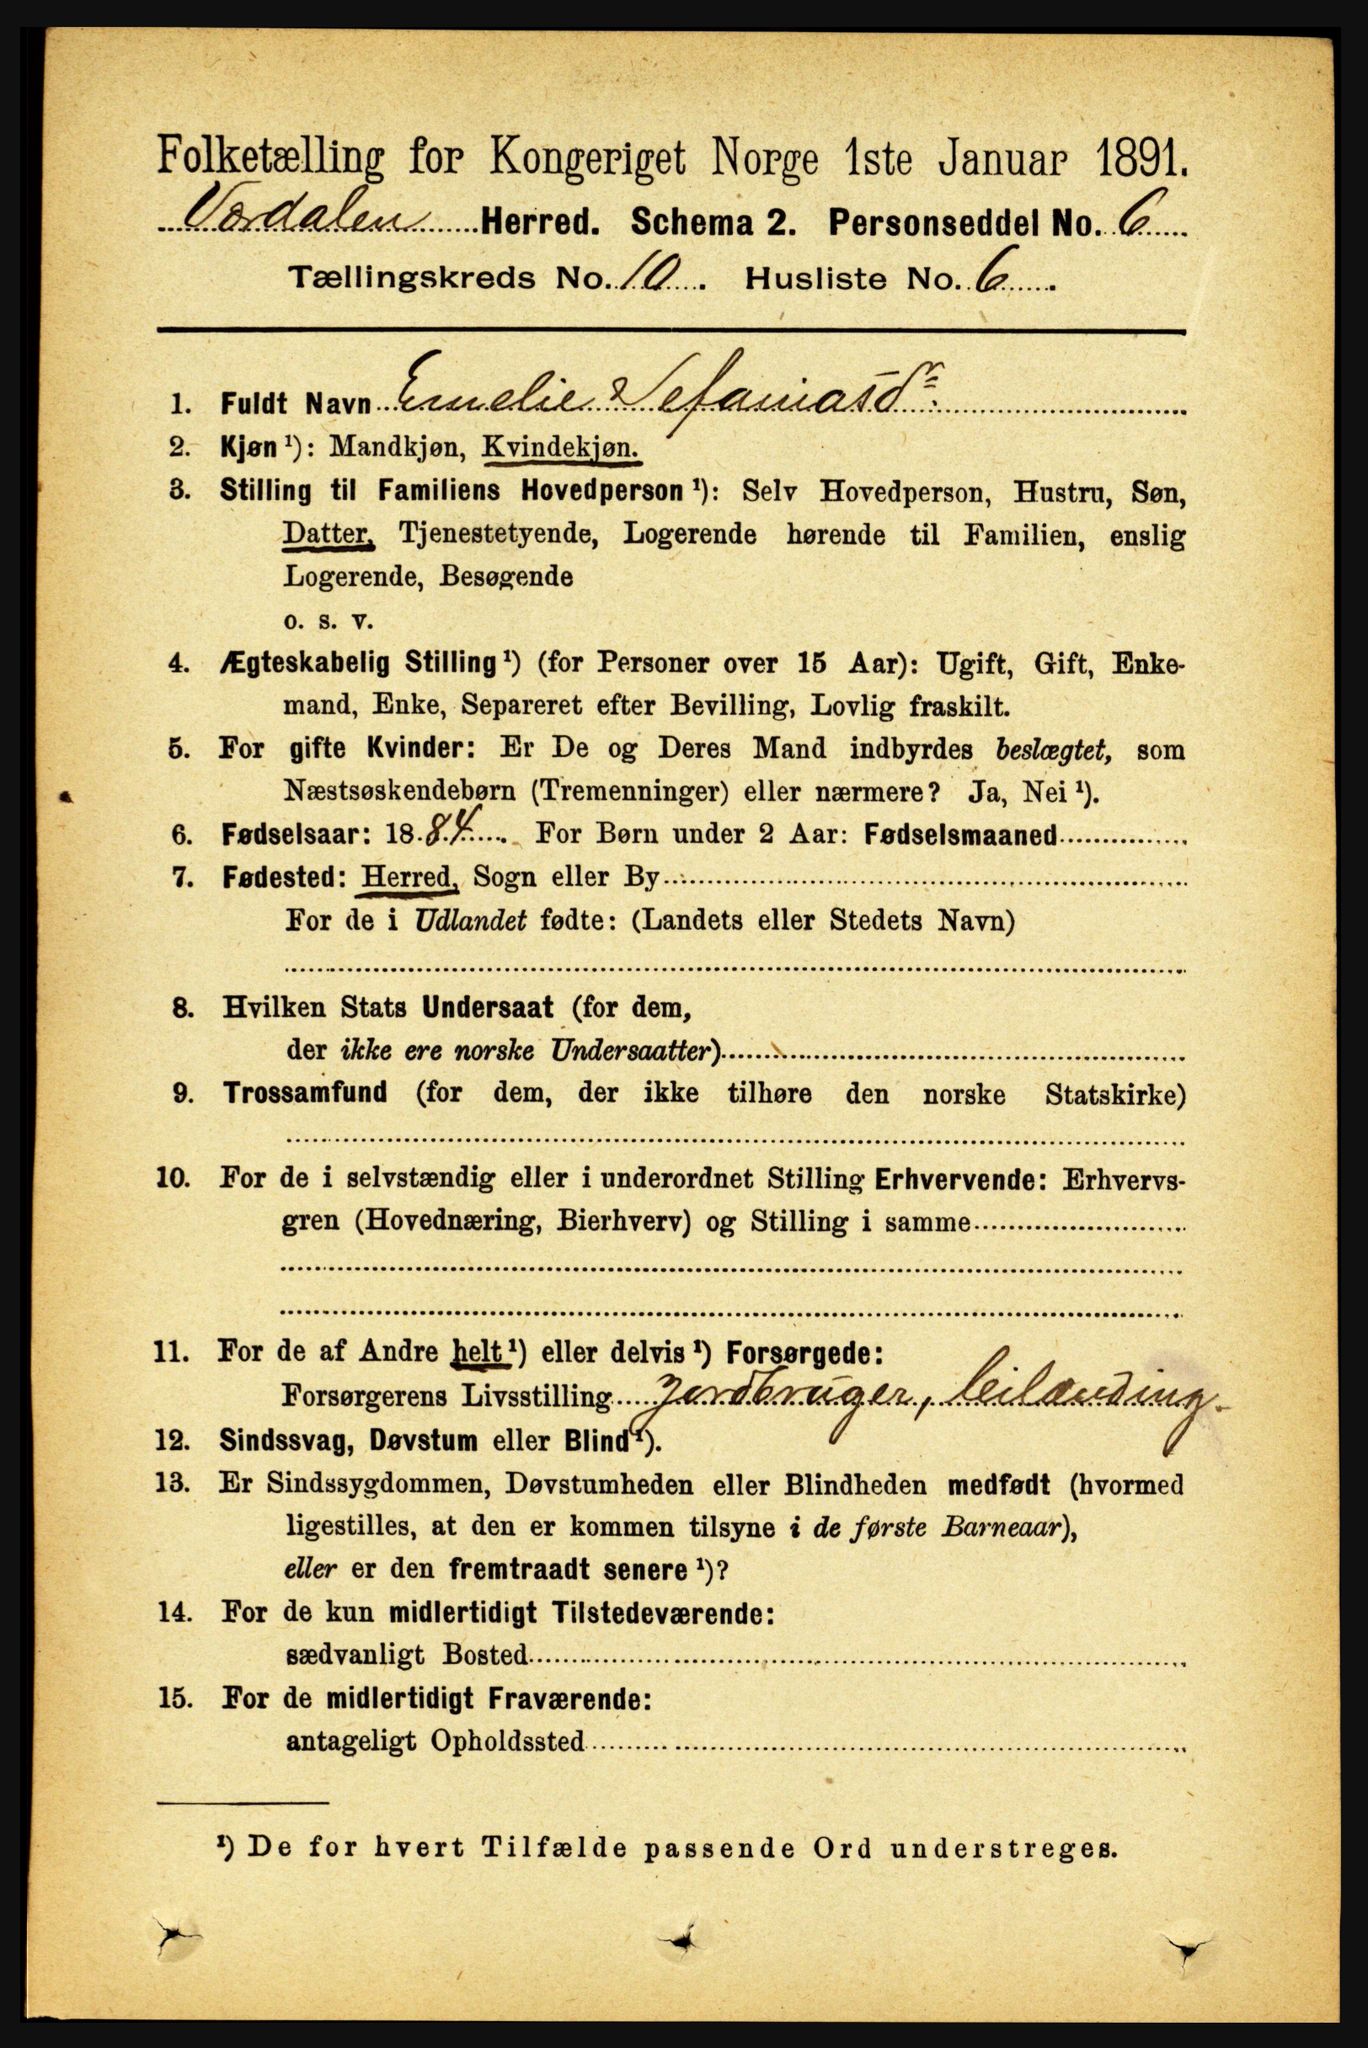 Folketælling for Kongeriget Norge 1ste Januar 1891.
Værdalen Herred. Schema 2. Personseddel No. 6
Tællingskreds No. 10. Husliste No. 6.
1. Fuldt Navn Emelie Sefaniasdr.
2. Kjøn ¹): Mandkjøn, Kvindekjøn.
3. Stilling til Familiens Hovedperson ¹): Selv Hovedperson, Hustru, Søn,
Datter, Tjenestetyende, Logerende hørende til Familien, enslig
Logerende, Besøgende
o. s. v.
4. Ægteskabelig Stilling ¹) (for Personer over 15 Aar): Ugift, Gift, Enke-
mand, Enke, Separeret efter Bevilling, Lovlig fraskilt.
5. For gifte Kvinder: Er De og Deres Mand indbyrdes beslægtet, som
Næstsøskendebørn (Tremenninger) eller nærmere? Ja, Nei ¹).
6. Fødselsaar: 1884. For Børn under 2 Aar: Fødselsmaaned
7. Fødested: Herred, Sogn eller By
For de i Udlandet fødte: (Landets eller Stedets Navn)
8. Hvilken Stats Undersaat (for dem,
der ikke ere norske Undersaatter)
9. Trossamfund (for dem, der ikke tilhøre den norske Statskirke)
10. For de i selvstændig eller i underordnet Stilling Erhvervende: Erhvervs-
gren (Hovednæring, Bierhverv) og Stilling i samme
11. For de af Andre helt ¹) eller delvis ¹) Forsørgede:
Forsørgerens Livsstilling Jordbruger, leilænding.
12. Sindssvag, Døvstum eller Blind ¹).
13. Er Sindssygdommen, Døvstumheden eller Blindheden medfødt (hvormed
ligestilles, at den er kommen tilsyne i de første Barneaar),
eller er den fremtraadt senere ¹)?
14. For de kun midlertidigt Tilstedeværende:
sædvanligt Bosted
15. For de midlertidigt Fraværende:
antageligt Opholdssted
¹) De for hvert Tilfælde passende Ord understreges.